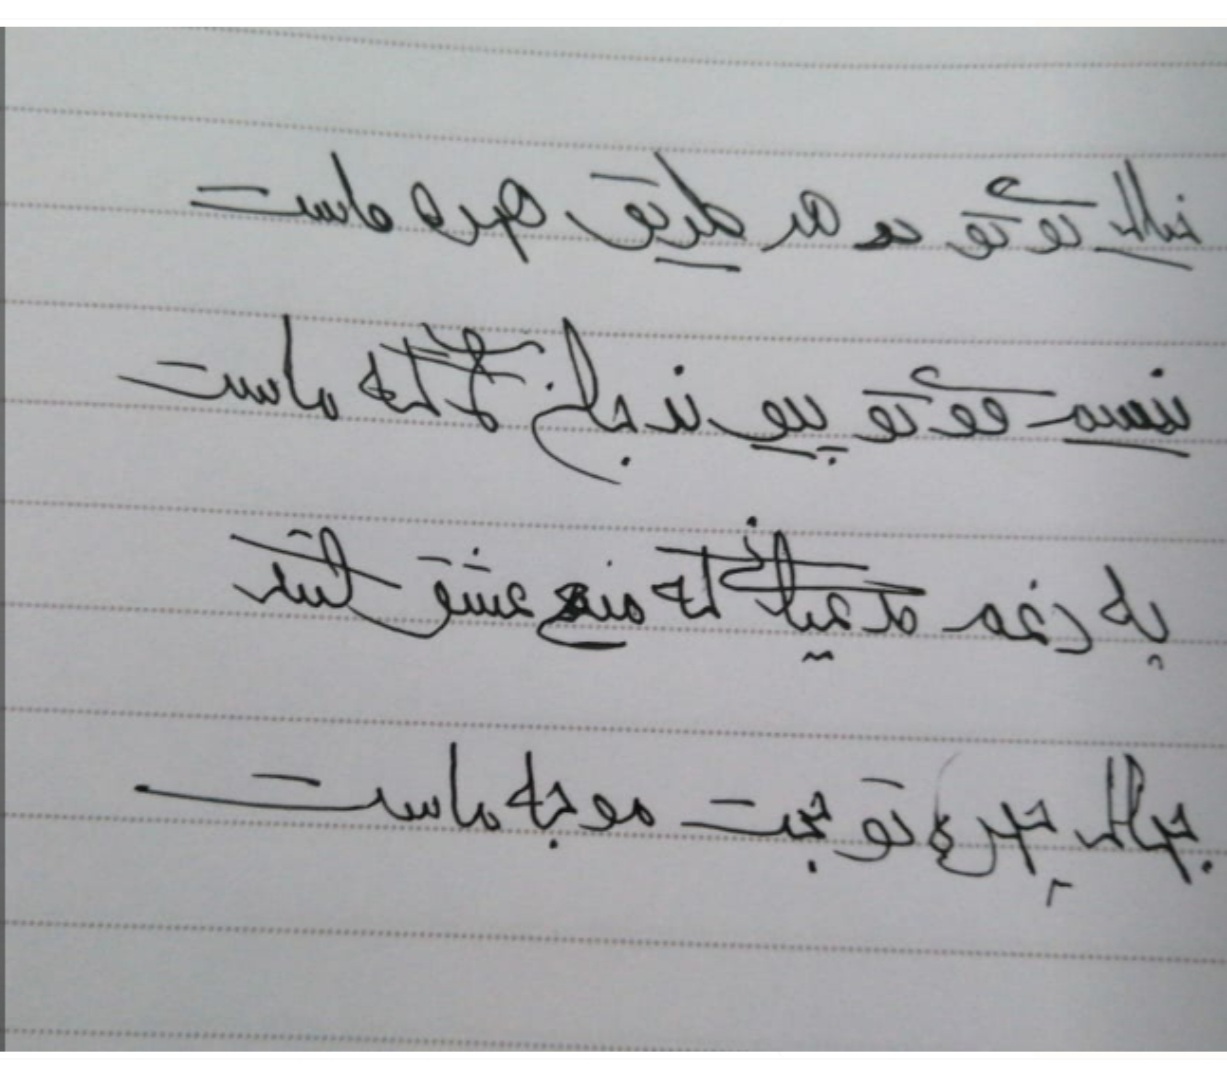 خیال روی تو در هر طریق همره ماست
نسیم موی تو پیوند جان آگه ماست
به رغم مدعیانی که منع عشق کنند
جمال چهره تو حجت موجه ماست